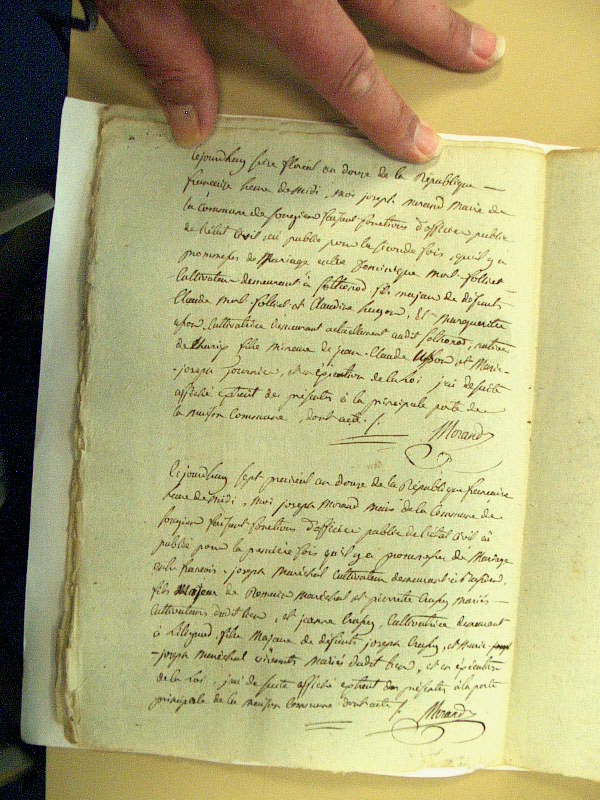 Cejourdhuy seize floreal an douze de la République
francaise heure de midi, moi joseph morand maire de
la Commune de songieu faisant fonctions d'officier public
de l'état civil, ai publié pour la seconde fois, qu'il y a
promesses de Mariage entre Dominique mort-follict
Cultivateur demeurant à fils majeur de défunts
Claude mort-follict et Claudine hugon, Et Marguerite
uffon, Cultivatrice demeurant actuellement audit native
de fille mineure de jean-Claude uffon et Marie
-joseph fournier, et en exécution de la loi j'ai de suite
affiché extrait des présentes à la principale porte de
la maison Commune, dont acte
Morand
Cejourdhuy sept prairial an douze de la République francaise
heure de midi, moi joseph Morand maire de la Commune de
songieu faisant fonctions d'officier public de l'état civil ai
publié pour la première fois qu'il y a promesses de Mariage
entre francois-joseph Maréchal Cultivateur demeurant
fils Majeur de Romain maréchal et pierrette mariés
Cultivateurs dudit lieu, et jeanne Cultivatrice demeurant
à fille Majeure de défunts joseph et Marie
-joseph Maréchal vivants Mariés dudit lieu, et en exécution
de la loi, j'ai de suite affiché extrait des présentes à la porte
principale de la maison Commune dont acte
Morand